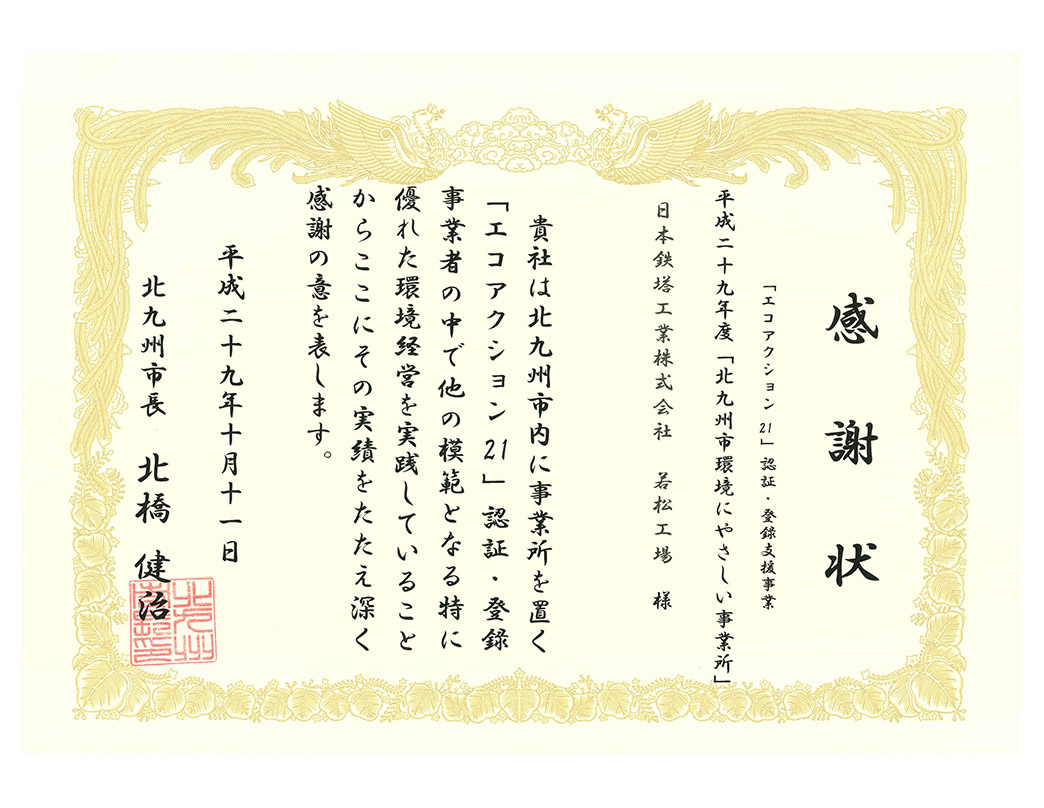 感謝状
「エコアクション21」認証・登録支援事業
平成二十九年度「北九州市環境にやさしい事業所」
日本鉄塔工業株式会社 若松工場 様
貴社は北九州市内に事業所を置く
「エコアクション21」認証・登録
事業者の中で他の模範となる特に
優れた環境経営を実践していること
からここにその実績をたたえ深く
感謝の意を表します。
平成二十九年十月十一日
北九州市長 北橋 健治